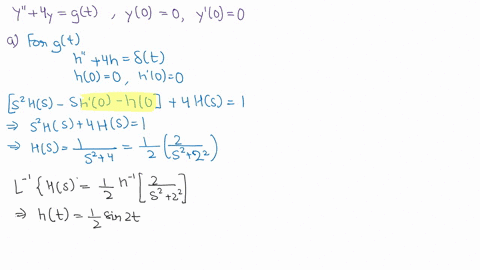 y″+4y = g(t) , y(0) = 0, y′(0)=0
a) For g(t)
h″+4h = δ(t)
h(0)=0, h′(0)=0
[s²H(s) - sh′(0) - h(0)] + 4H(s) = 1
⇒ s²H(s) + 4H(s) = 1
⇒ H(s) = 1/(s²+4) = 1/2 (2/(s²+2²))
L⁻¹{H(s) = 1/2 h⁻¹[2/(s²+2²)]
⇒ h(t) = 1/2 sin2t